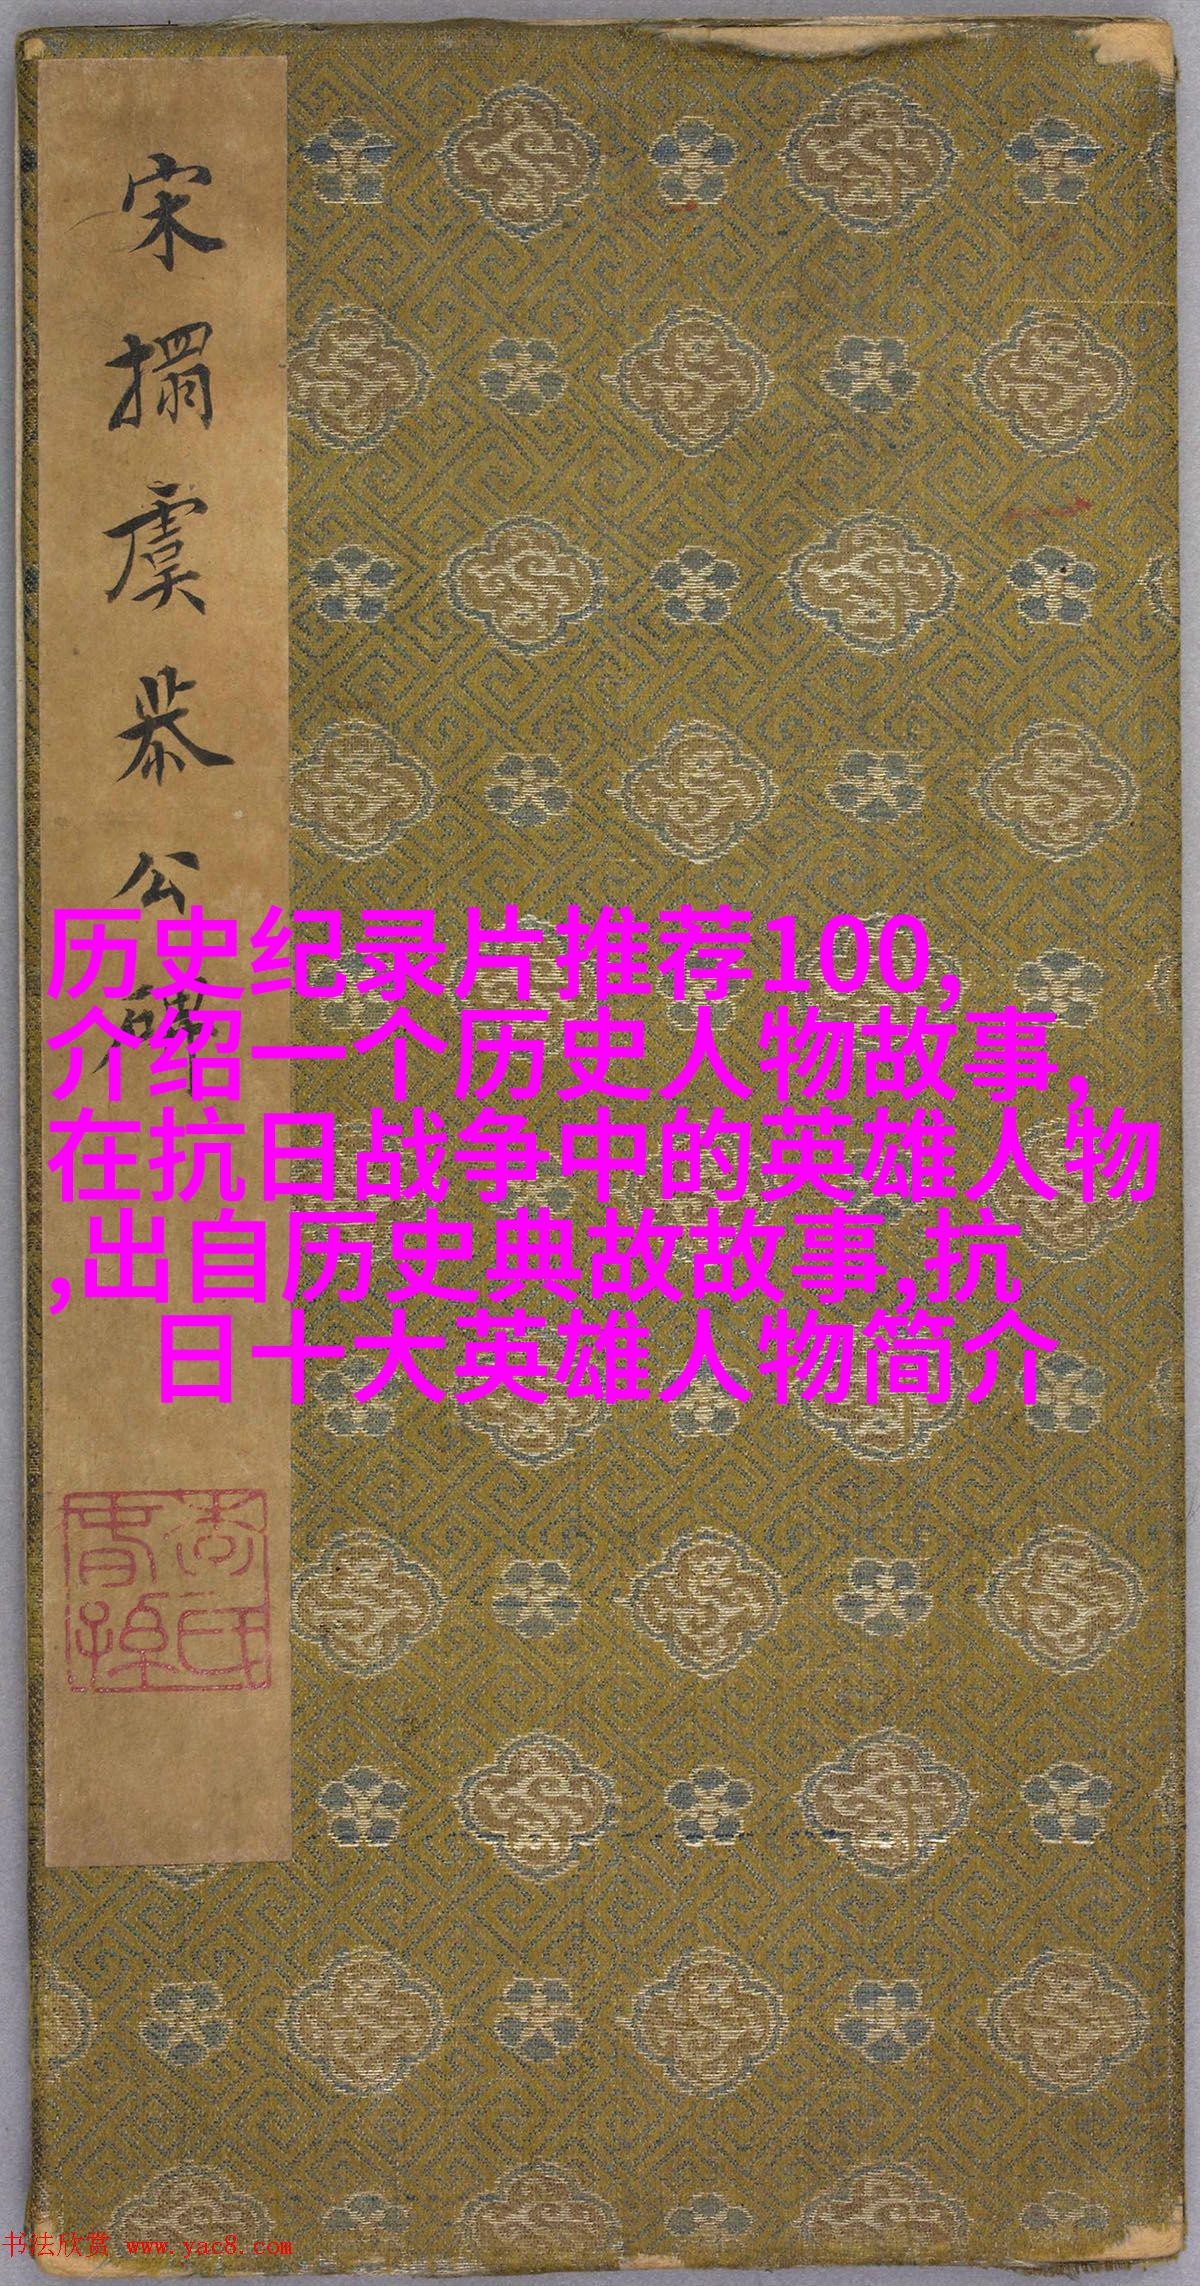 宋搨虞恭公碑
历史纪录片推荐100,
介绍一个历史人物故事,
在抗日战争中的英雄人物
,出自历史典故故事,抗
日十大英雄人物简介
书法欣赏 www.yac8.com